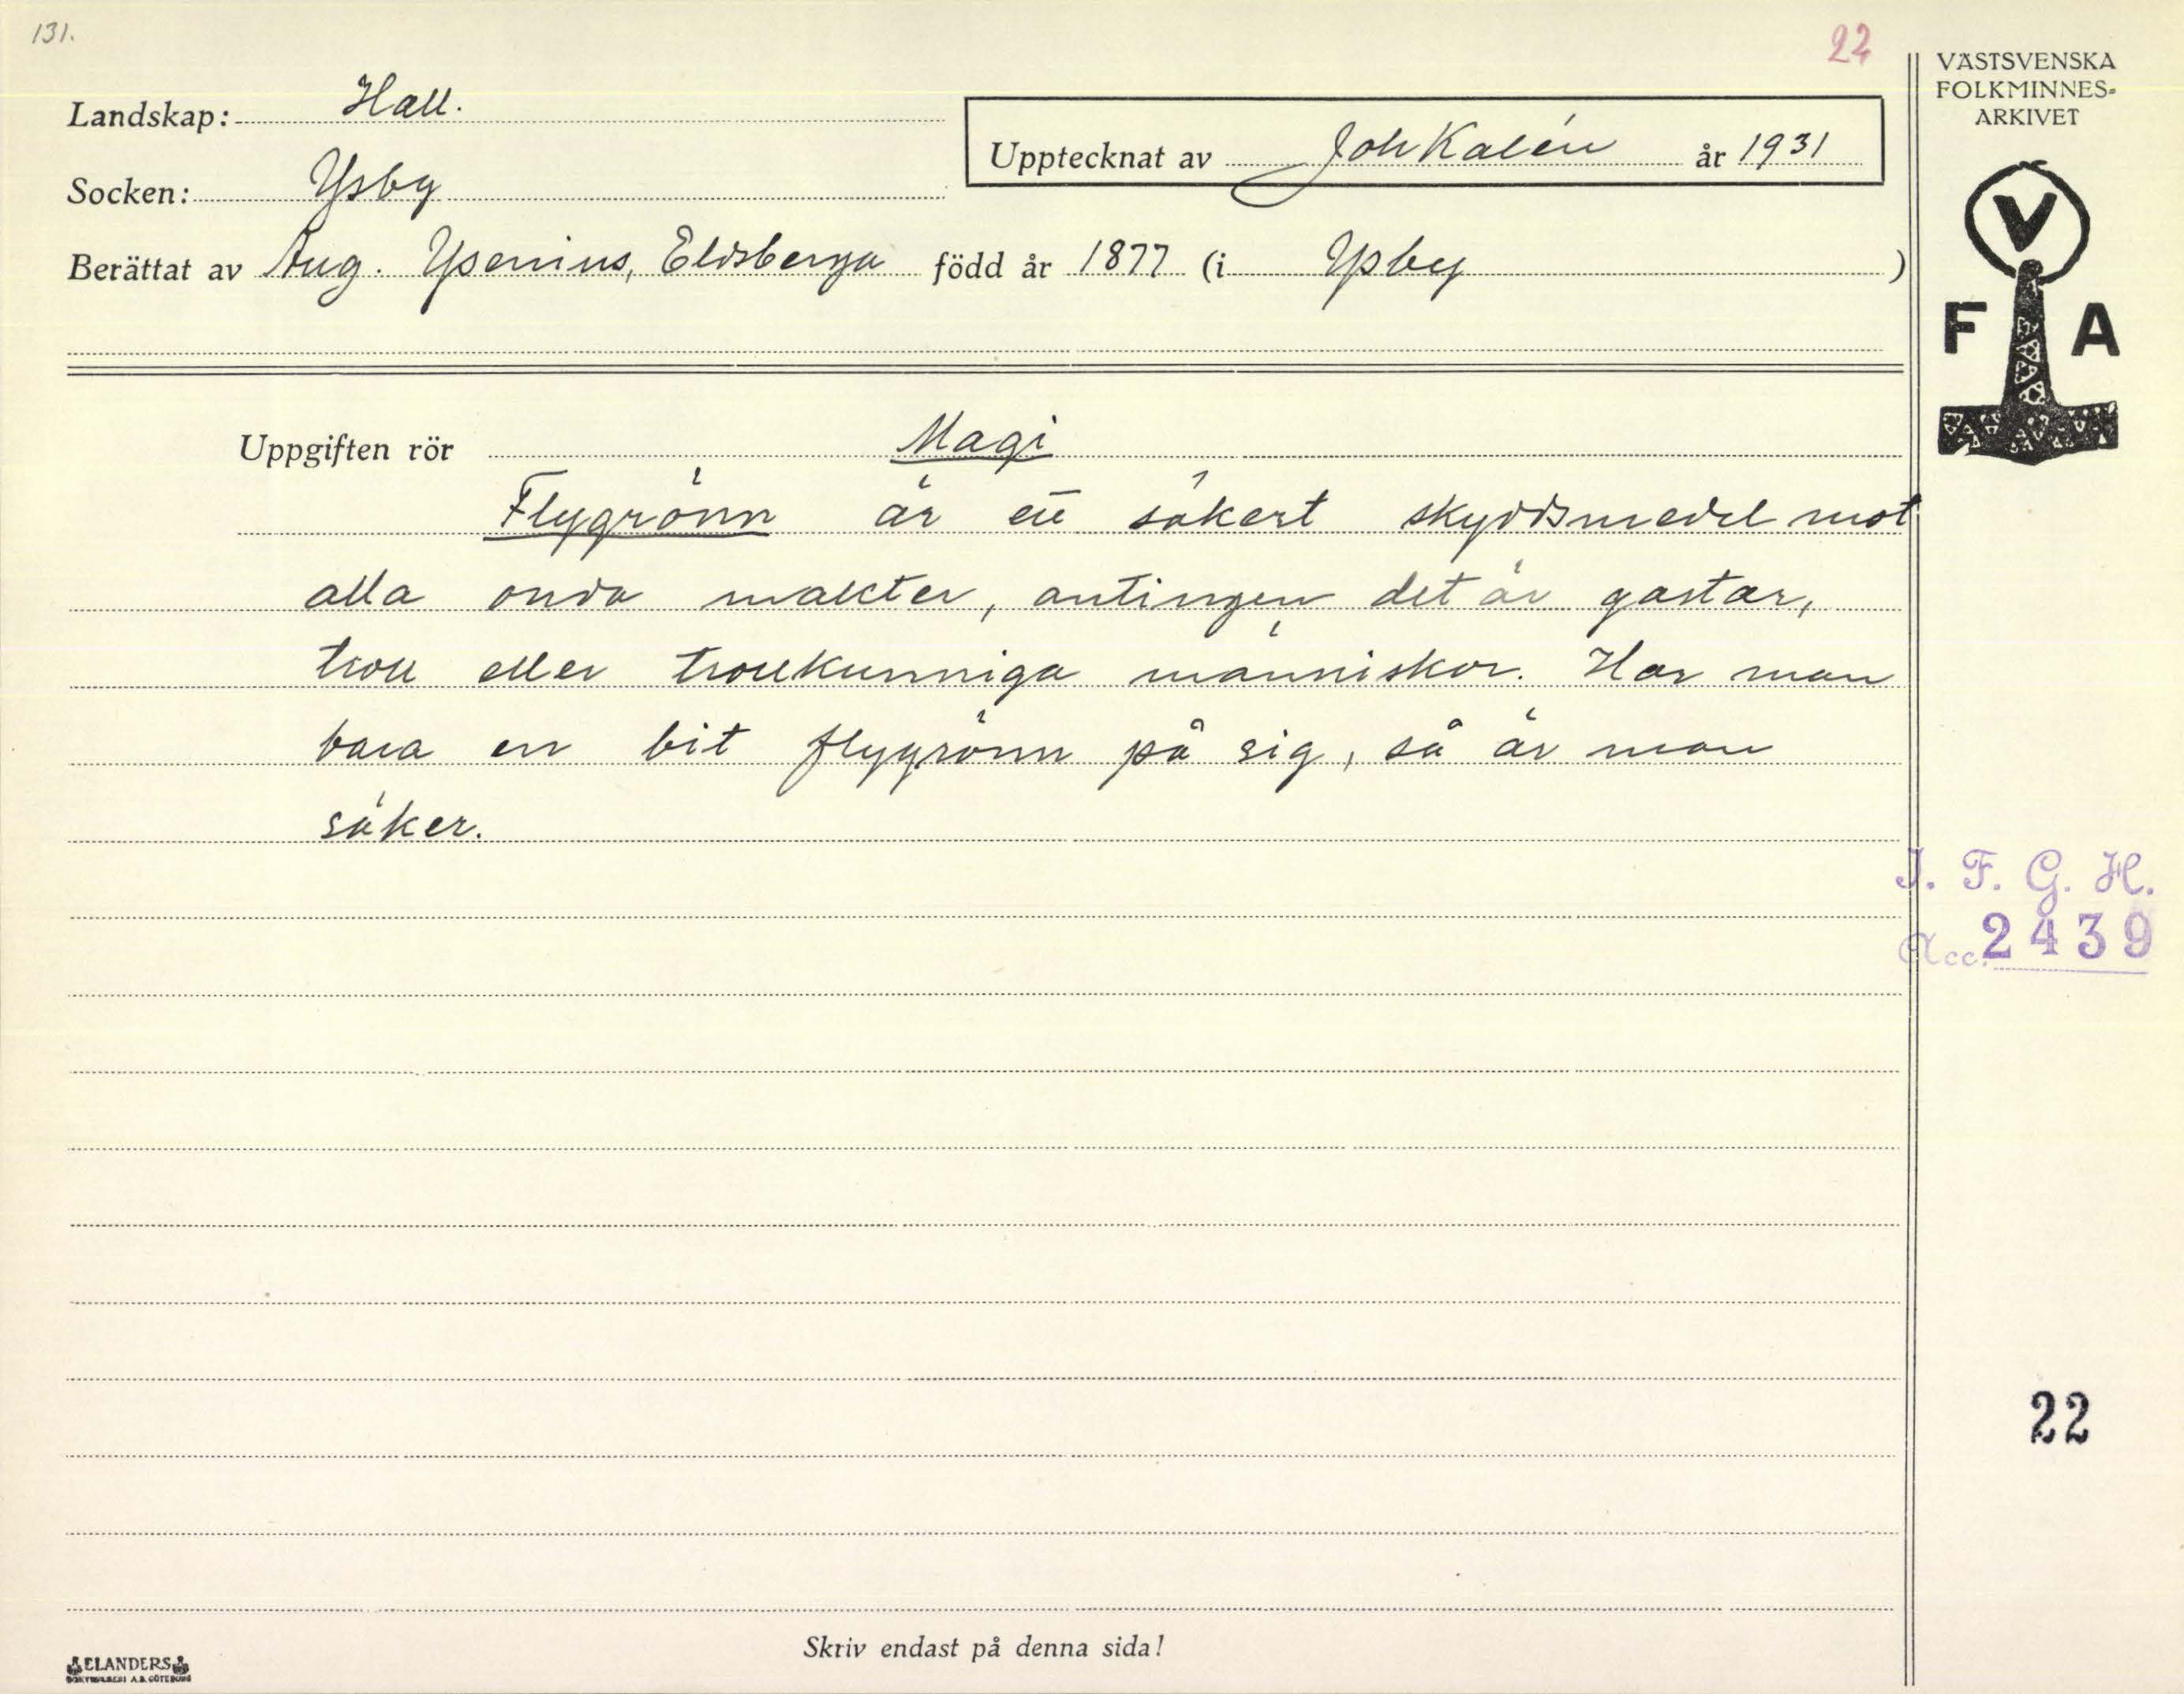 131.
22
VÄSTSVENSKA
FOLKMINNES-
ARKIVET
Landskap: Hall.
Upptecknat av Joh Kalén år 1931
Socken: Ysby
Berättat av Aug. Ysenius, Eldsberga född år 1877 (i Ysby)
V
F A
Uppgiften rör Magi
Flygrönn är ett säkert skyddsmedel mot
alla onda makter, antingen det är gastar,
troll eller trollkunniga människor. Har man
bara en bit flygrönn på sig, så är man
säker.
I. F. G. H.
Acc. 2439
22
Skriv endast på denna sida!
ELANDERS
BOKTRYCKERI A.B. GÖTEBORG